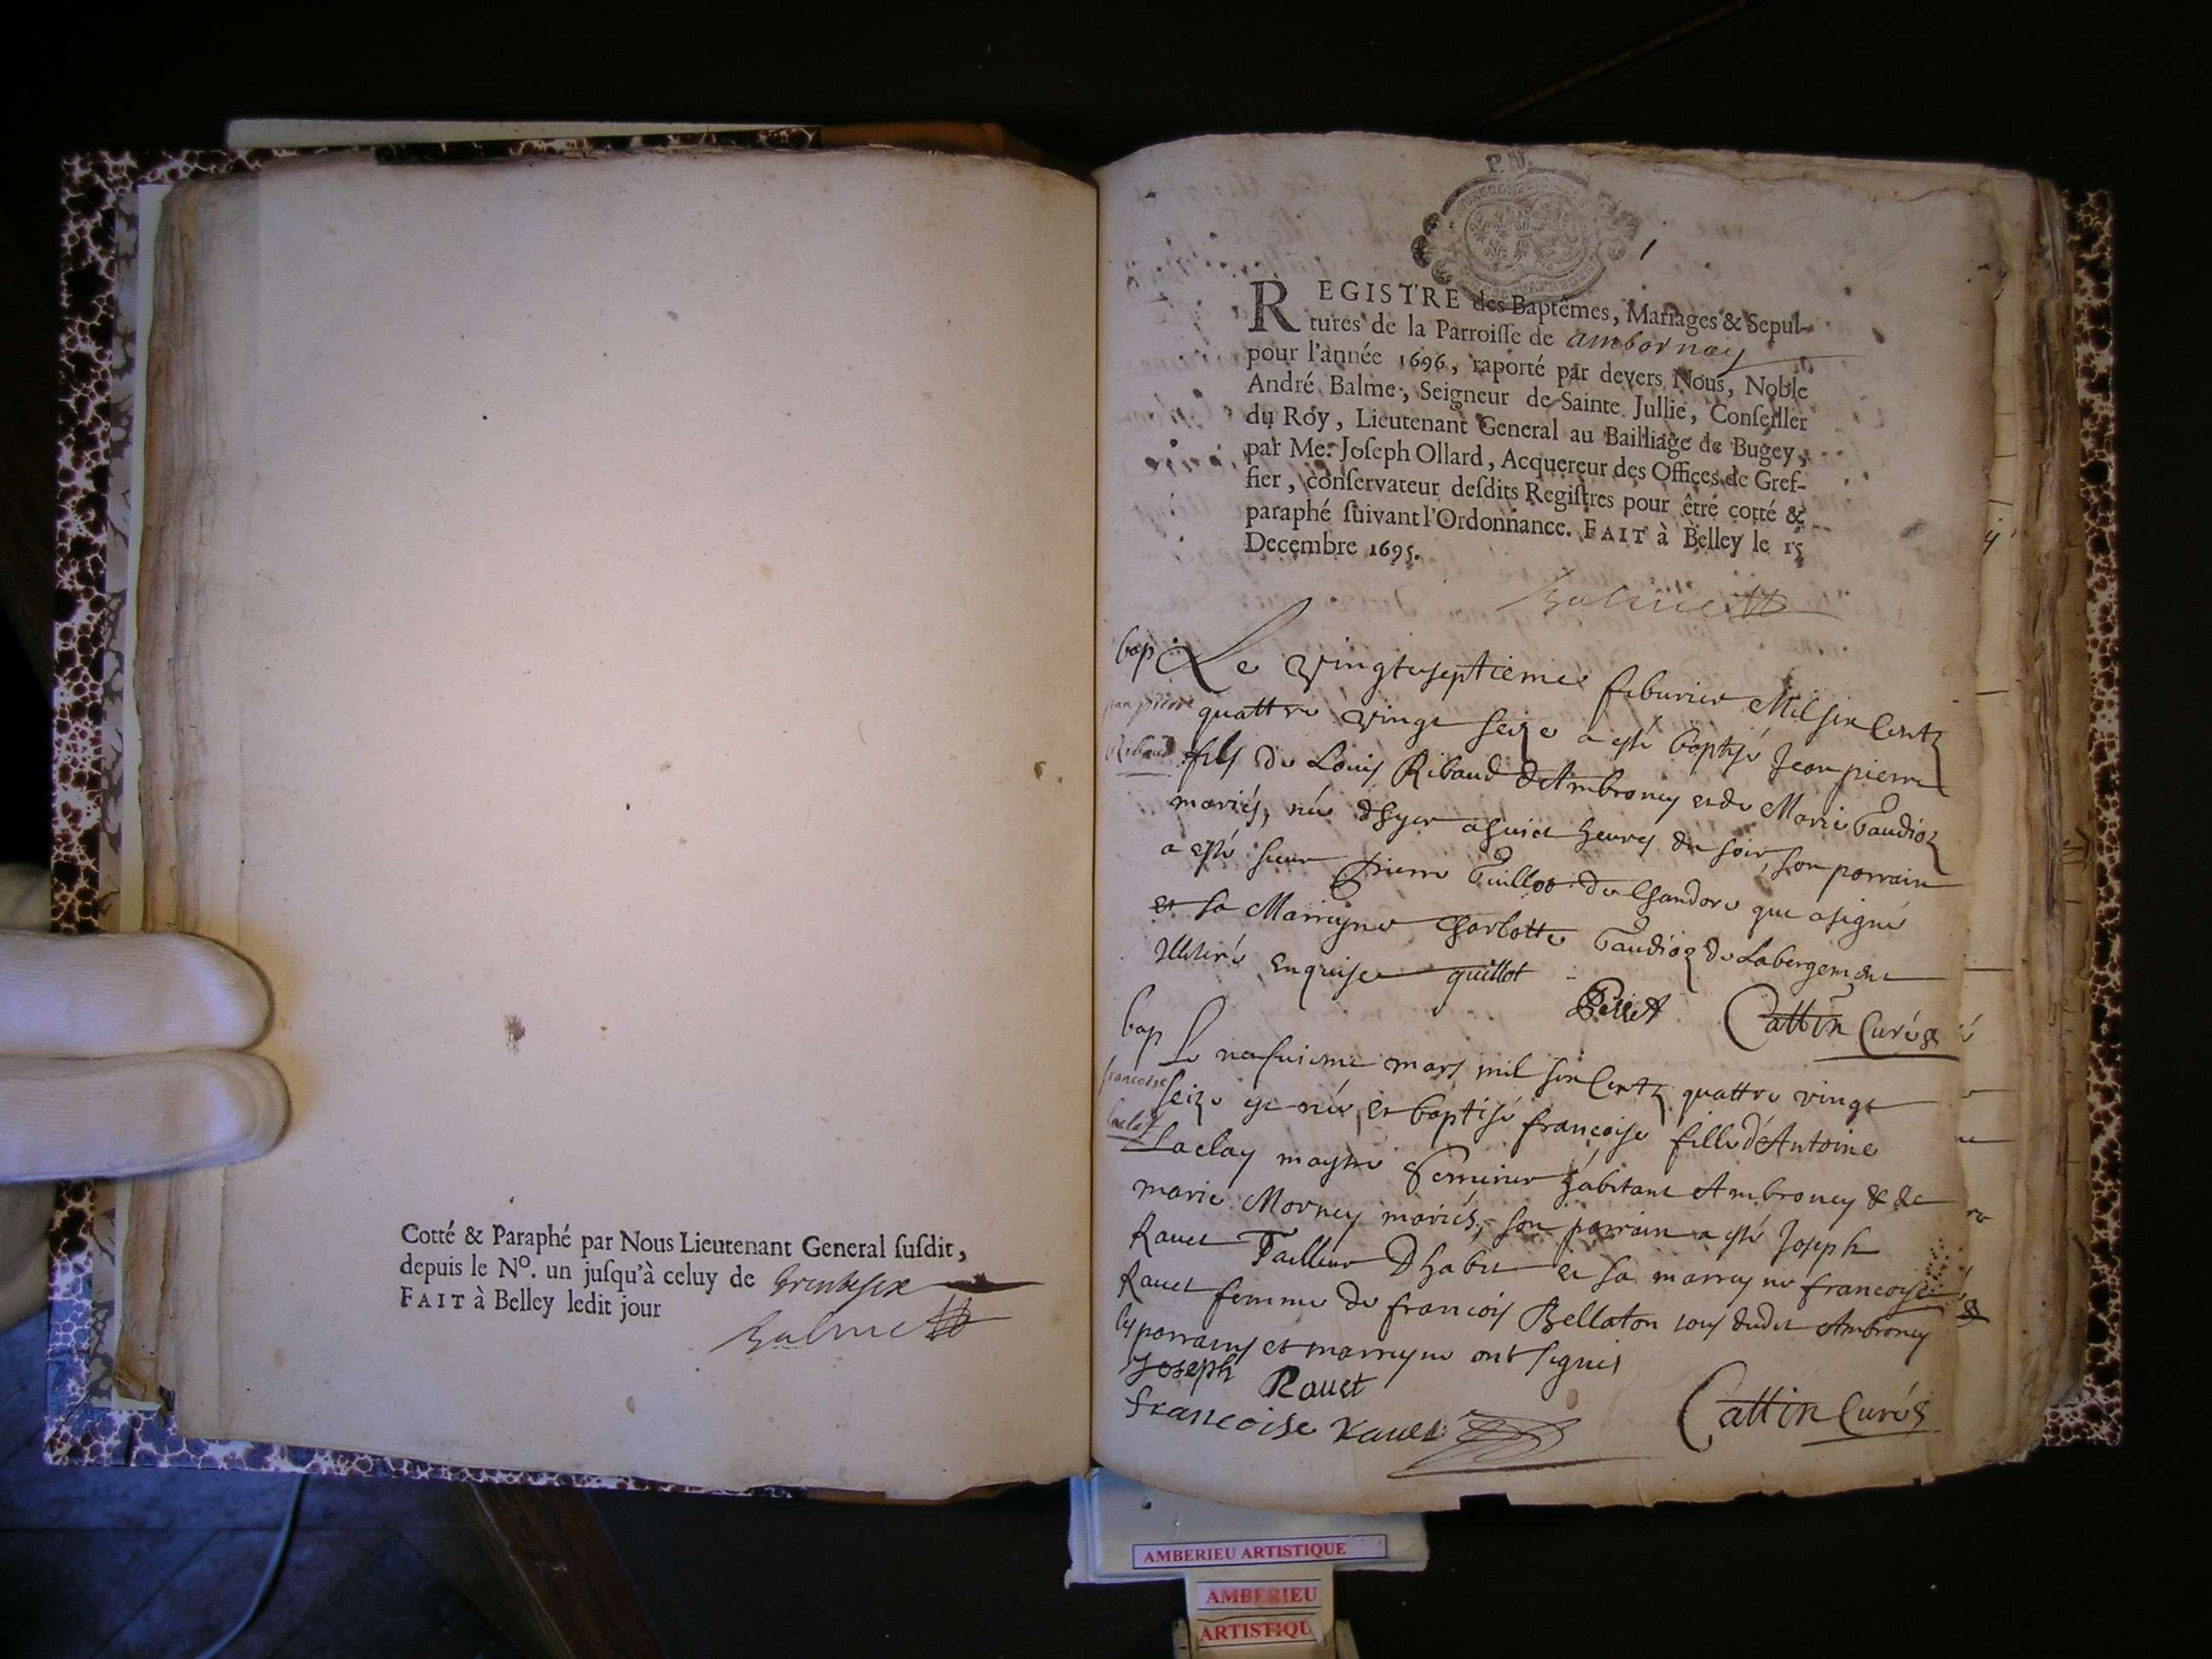 Cotté & Paraphé par Nous Lieutenant General susdit,
depuis le Nº. un jusqu'à celuy de trentesix
FAIT à Belley ledit jour
Balme
REGISTRE des Baptêmes, Mariages & Sepul-
tures de la Parroisse de ambornay
pour l'année 1696, raporté par devers Nous, Noble
André Balme, Seigneur de Sainte Jullie, Conseiller
du Roy, Lieutenant General au Bailliage de Bugey,
par Me. Joseph Ollard, Acquereur des Offices de Gref-
fier, conservateur desdits Registres pour être cotté &
paraphé suivant l'Ordonnance. FAIT à Belley le 15
Decembre 1695.
Balme
bap Le vingtseptieme feburier Mil six Centz
jean pierre quattre vingt seize a esté baptisé Jean pierre
Ribaud fils de Louis Ribaud d'Ambroney et de Marie Gaudioz
mariés, née dhyer a huict heures du soir, son parrain
a esté sieur Pierre Guillot de Chandore qui a signé
et sa Marreyne Charlotte Gaudioz de Labergement
Illitéré Enquise guillot
Cattin Curé
bap Le neufuieme mars mil six Centz quattre vingt
francoise seize est née et baptisé françoise fille d'Antoine
laclay Laclay maytre Serrurier habitant Ambroney & de
marie Morney mariés, son parrain a esté Joseph
Rauet Tailleur Dhabit et sa marreyne francoise
Rauet femme de francois Bellaton tous dudit Ambroney
les parrains et marreyne ont signés
Joseph Rauet
francoise Rauet Cattin Curé
AMBERIEU ARTISTIQUE
AMBERIEU
ARTISTIQU